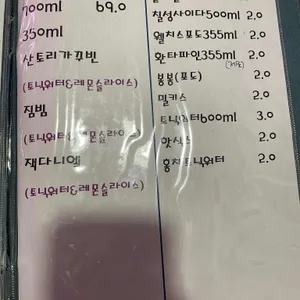 700ml 69.0
350ml
산토리가쿠빈
(토닉워터&레몬슬라이스)
짐빔
(토닉워터&레몬슬라이스)
잭다니엘
(토닉워터&레몬슬라이스)
칠성사이다500ml 2.0
웰치스포도355ml 2.0
환타파인355ml 2.0
봉봉(포도) 2.0
밀키스 2.0
토닉워터600ml 3.0
핫식스 2.0
홍차토닉워터 2.0